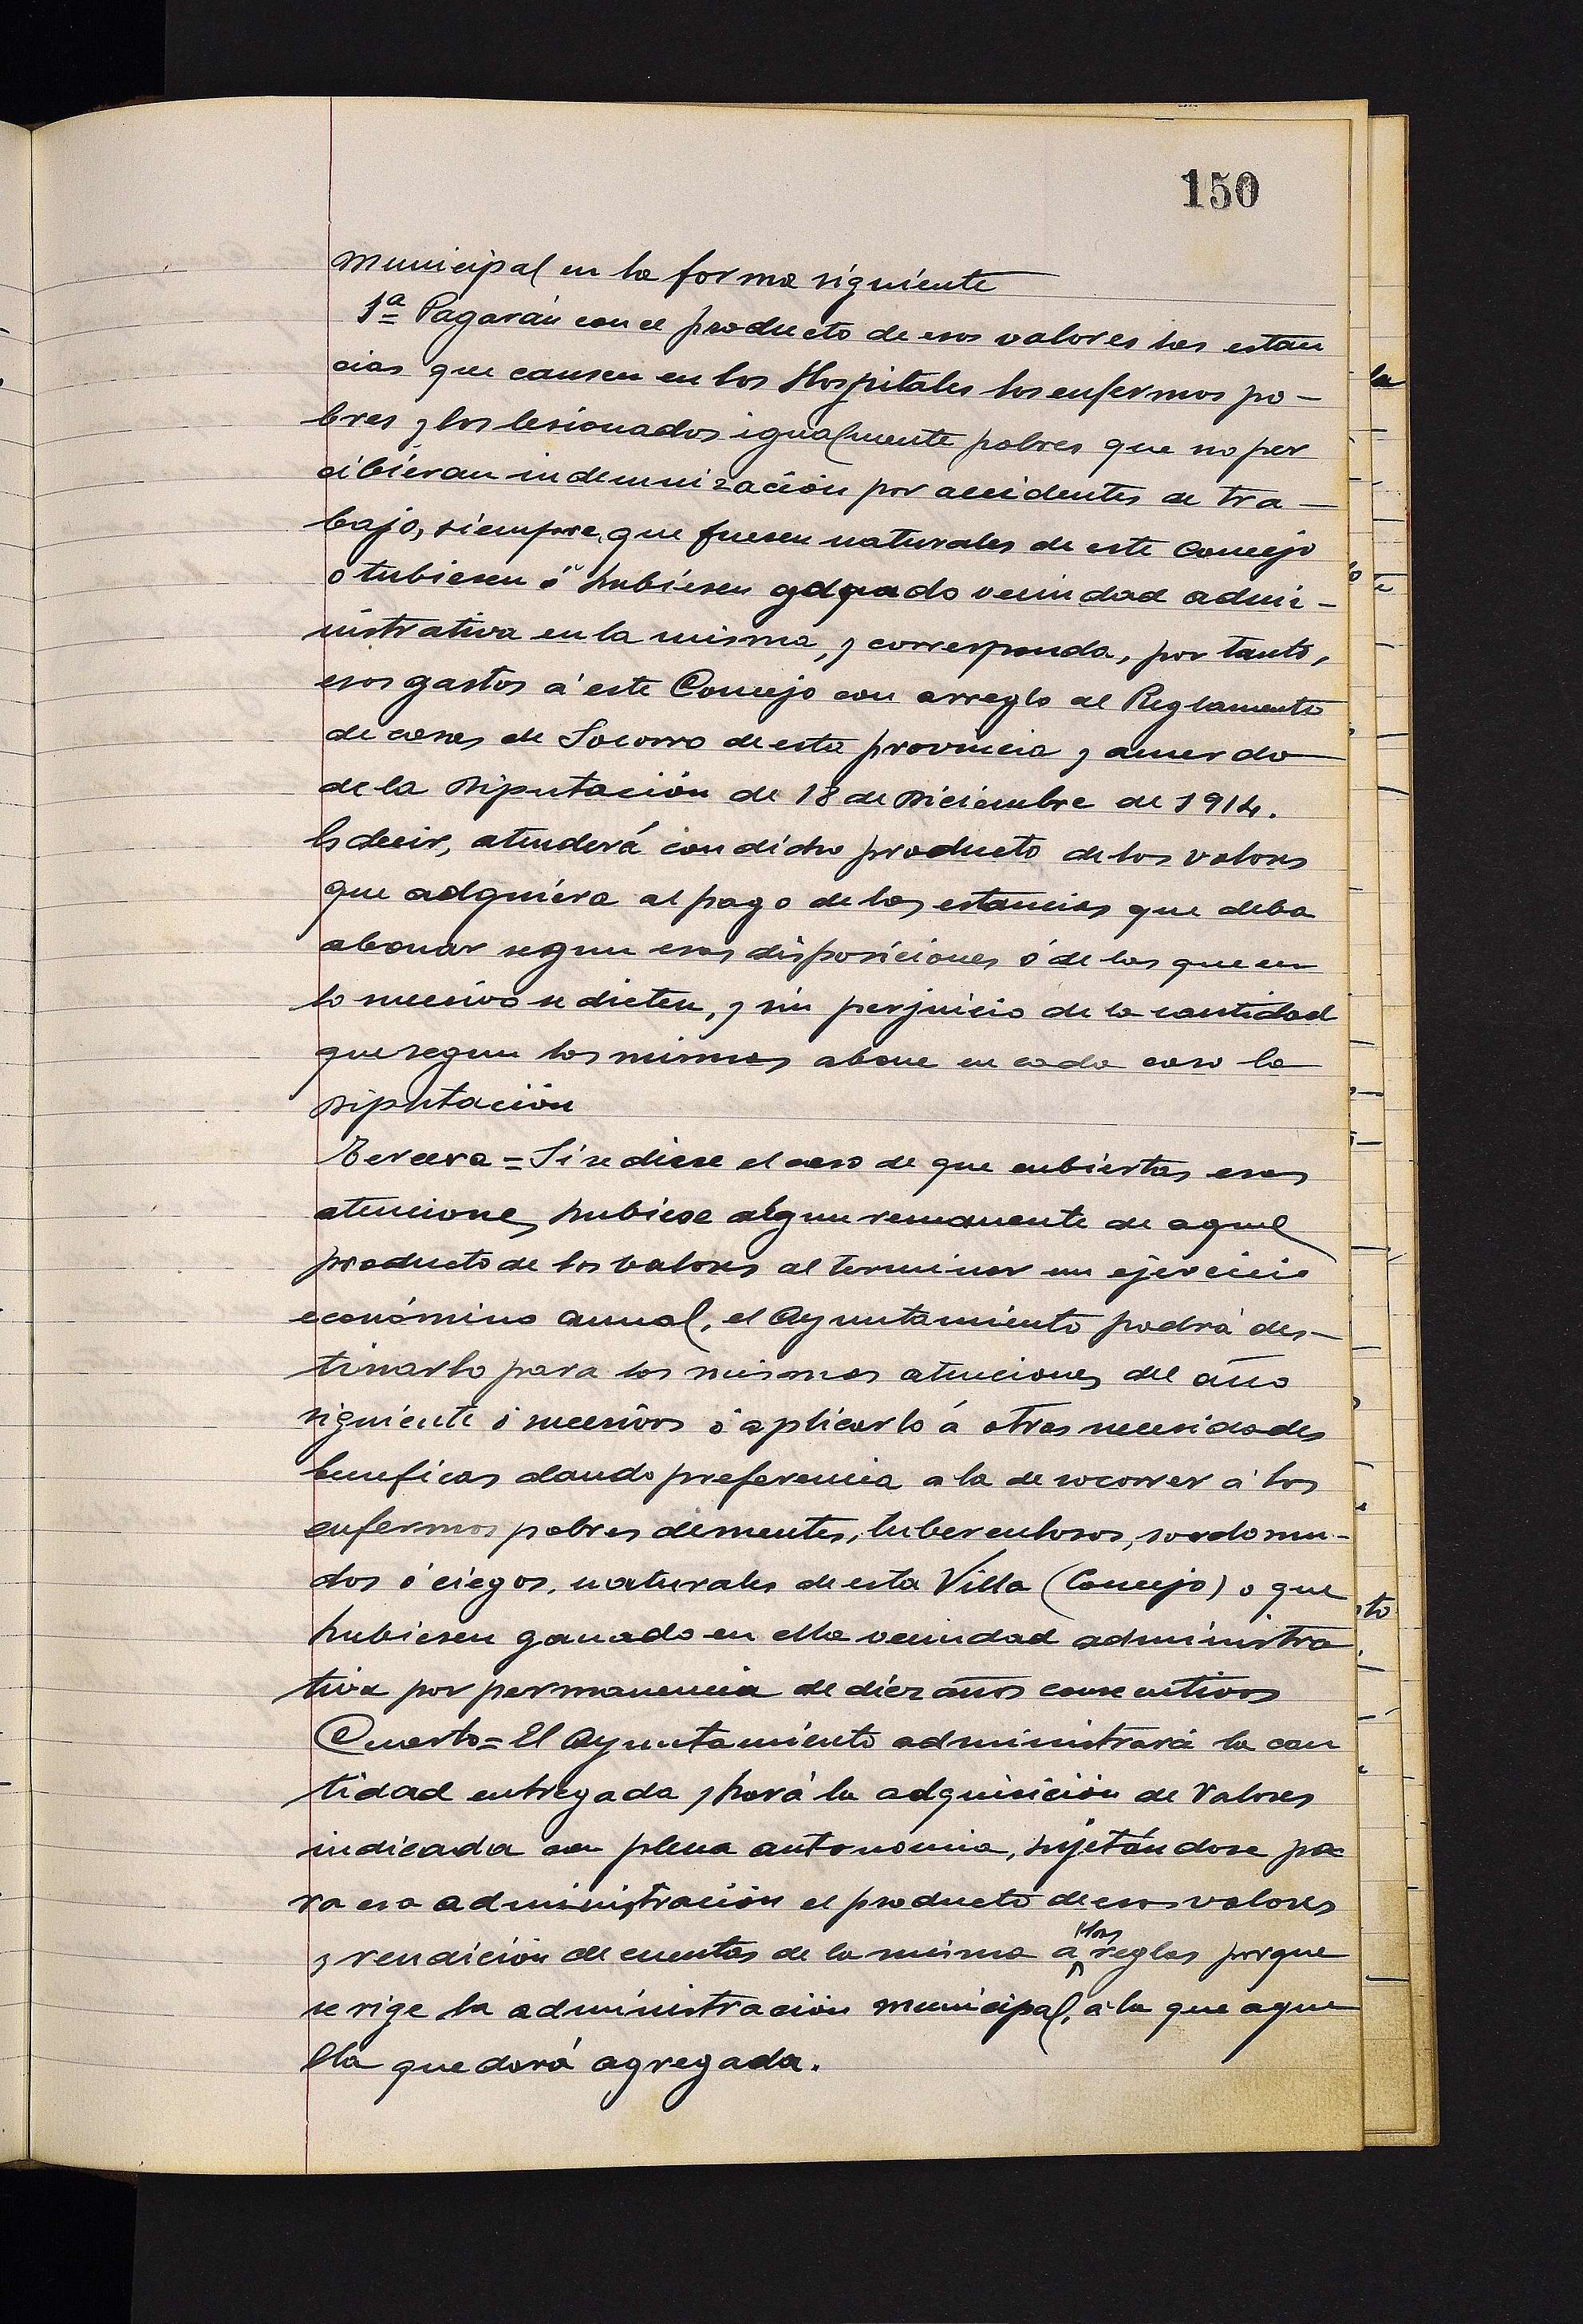 150
municipal en la forma siguiente
1ª Pagarán con el producto de esos valores las estan
cias que causen en los Hospitales los enfermos po-
bres y los lesionados igualmente pobres que no per
cibieran indemnización por accidentes de tra-
bajo, siempre, que fuesen naturales de este Concejo
o tubiesen ó hubiesen ganado vecindad admi-
nistrativa en la misma, y corresponda, por tanto,
esos gastos á este Concejo con arreglo al Reglamento
de casas de Socorro de esta provincia y acuerdo
de la Diputación de 18 de Diciembre de 1914.
Es decir, atenderá con dicho producto de los valores
que adquiera al pago de las estancias que deba
abonar segun esas disposiciones ó de las que en
lo sucesivo se dicten, y sin perjuicio de la cantidad
que segun las mismas abone en cada caso la
Diputación
Tercera = Si se diese el caso de que cubiertas esas
atenciones hubiese algun remanente de aquel
producto de los valores al terminar un ejercicio
económino anual, el Ayuntamiento podrá des-
tinarlo para las mismas atenciones del año
siguiente ó sucesivos ó aplicarlo á otras necesidades
beneficas dando preferencia a la de socorrer á los
enfermos pobres dementes, tuberculosos, sordomu-
dos ó ciegos, naturales de esta Villa (Concejo) o que
hubiesen ganado en ella vecindad administra
tiva por permanencia de diez años consecutivos
Cuarta = El Ayuntamiento administrará la can
tidad entregada y hará la adquisición de Valores
indicada con plena autonomia, sujetándose pa
ra esa administración el producto de esos valores
y rendición de cuentas de la misma a las reglas porque
se rige la administración municipal, á la que aque
lla quedará agregada.